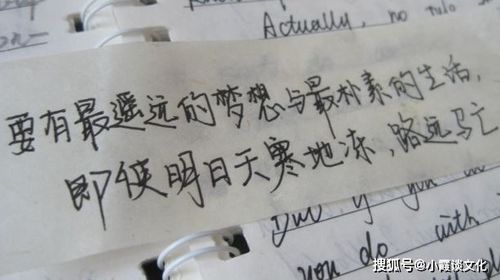 Actually, no
要有最遥远的梦想与最朴素的生活,
即使明日天寒地冻,路远马亡
But if you
you do with
搜狐号@小霞谈文化